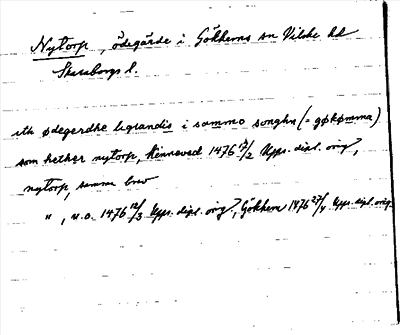 Nytorp, ödegärde i Gökhems sn Vilske hd
Skaraborgs l.
eth ødegerdhe liggandis i sammo songhn (= gøkømma)
som hether nytorp, Kinneved 1476 17/2 Upps. dipl. orig,
nytorp, samma brev
" , u.o. 1476 12/3 Upps. dipl. orig, Gökhem 1476 27/4 Upps. dipl. orig